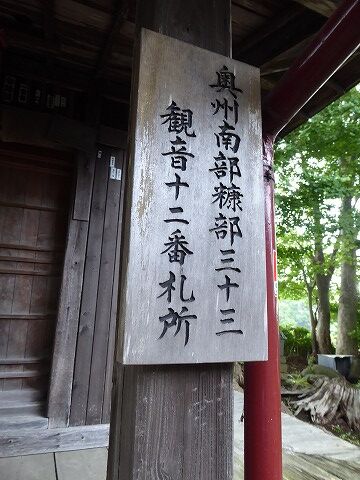 奥州南部糠部三十三
観音十二番札所